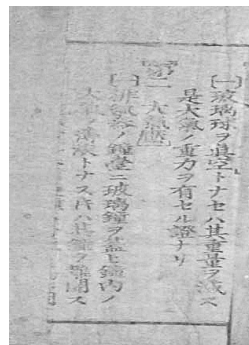 (一)玻璃球ヲ眞空トナセハ其重量ヲ減ス
是大氣ノ重力ヲ有セル證ナリ
第二 大氣壓
(一)排氣器ノ鐘臺ニ玻璃鐘ヲ蓋ヒ鐘內ノ
大氣ヲ稀薄トナス片ハ其鐘ヲ離開ス